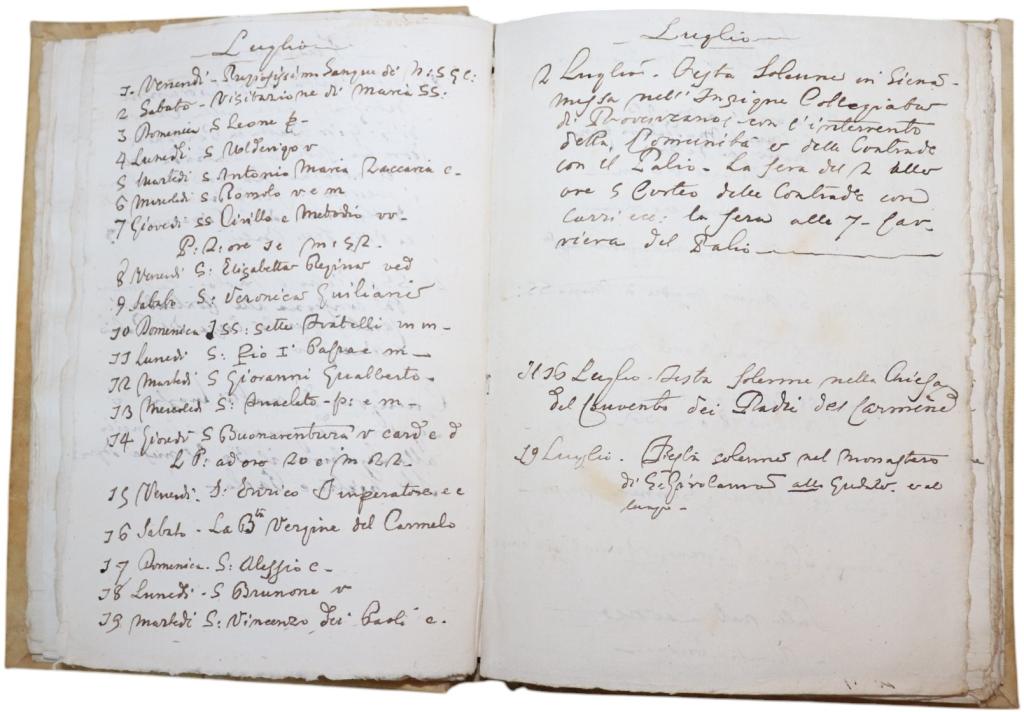 Luglio
1. Venerdì - Preziosissim Sangue di N: S G C:
2 Sabato - Visitazione di Maria SS:
3 Domenica S Leone P -
4 Lunedì S Ulderigo v
5 Martedì S Antonio Maria Zaccaria c -
6 Mercoledì S Romolo v e m
7 Giovedì SS Cirillo e Metodio vv -
P: Q: ore 1e m: 52 -
8 Venerdì S: Elisabetta Regina ved
9 Sabato S: Veronica Guiliani
10 Domenica SS: Sette Fratelli m m -
11 Lunedì S: Pio I° Papa e m -
12 Martedì S Giovanni Gualberto -
13 Mercoledì S: Anacleto - p: e m -
14 Giovedì S Buonaventura v card e d
L P: ad ore 20 e m 22 -
15 Venerdì - S: Enrico Imperatore e c
16 Sabato - La Bta Vergine del Carmelo
17 Domenica - S: Alessio c -
18 Lunedì - S Brunone v
19 Martedì S: Vincenzo dei Paoli c.
Luglio
2 Luglio - Festa Solenne in Siena -
messa nell' Insigne Collegiata
di Provenzano, con l'intervento
della Comunità e delle Contrade
con il Palio - La sera del 2 alle
ore 5 Corteo delle Contrade con
Carri ecc: la sera alle 7 - Car-
riera del Palio
Il 16 Luglio - Festa Solenne nella Chiesa
del Convento dei Padri del Carmine
19 Luglio - Festa solenne nel Monastero
di S: Girolamo